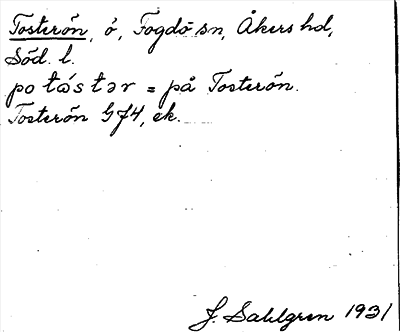 Tosterön, ö, Fogdö sn, Åkers hd,
Söd. l.
po tǻstər = på Tosterön.
Tosterön GJ4, ek.
J. Sahlgren 1931